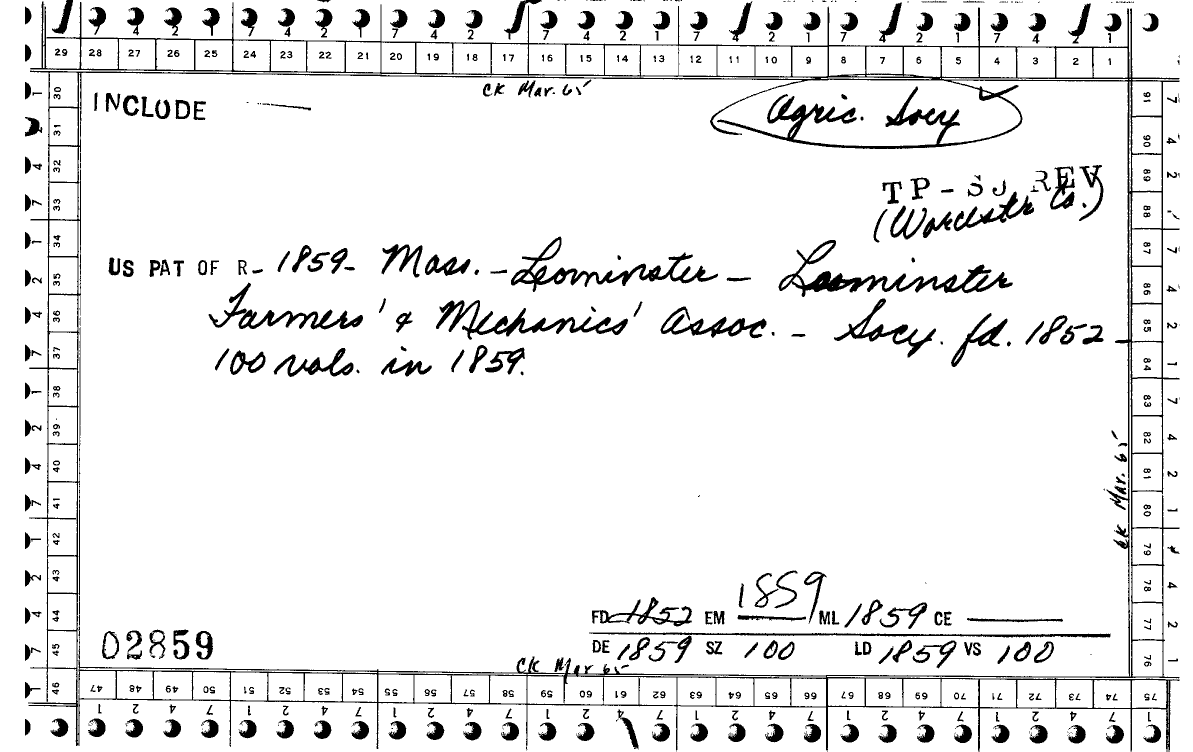 7 4 2 1 7 4 2 1 7 4 2 1 7 4 2 1 7 4 2 1 7 4 2 1 7 4 2 1
29 28 27 26 25 24 23 22 21 20 19 18 17 16 15 14 13 12 11 10 9 8 7 6 5 4 3 2 1
CK Mar. 65
INCLUDE
Agric. Socy
TP - SJ REV
(Worcester Co.)
US PAT OF R- 1859- Mass. - Leominster - Leominster
Farmers' & Mechanics' Assoc. - Socy. fd. 1852 -
100 vols. in 1859.
CK Mar. 65
1859
FD 1852 EM ML 1859 CE
02859
DE 1859 SZ 100 LD 1859 VS 100
CK Mar 65
30 31 32 33 34 35 36 37 38 39 40 41 42 43 44 45 46
91 90 89 88 87 86 85 84 83 82 81 80 79 78 77 76
47 48 49 50 51 52 53 54 55 56 57 58 59 60 61 62 63 64 65 66 67 68 69 70 71 72 73 74 75
1 2 4 7 1 2 4 7 1 2 4 7 1 2 4 7 1 2 4 7 1 2 4 7 1 2 4 7 1